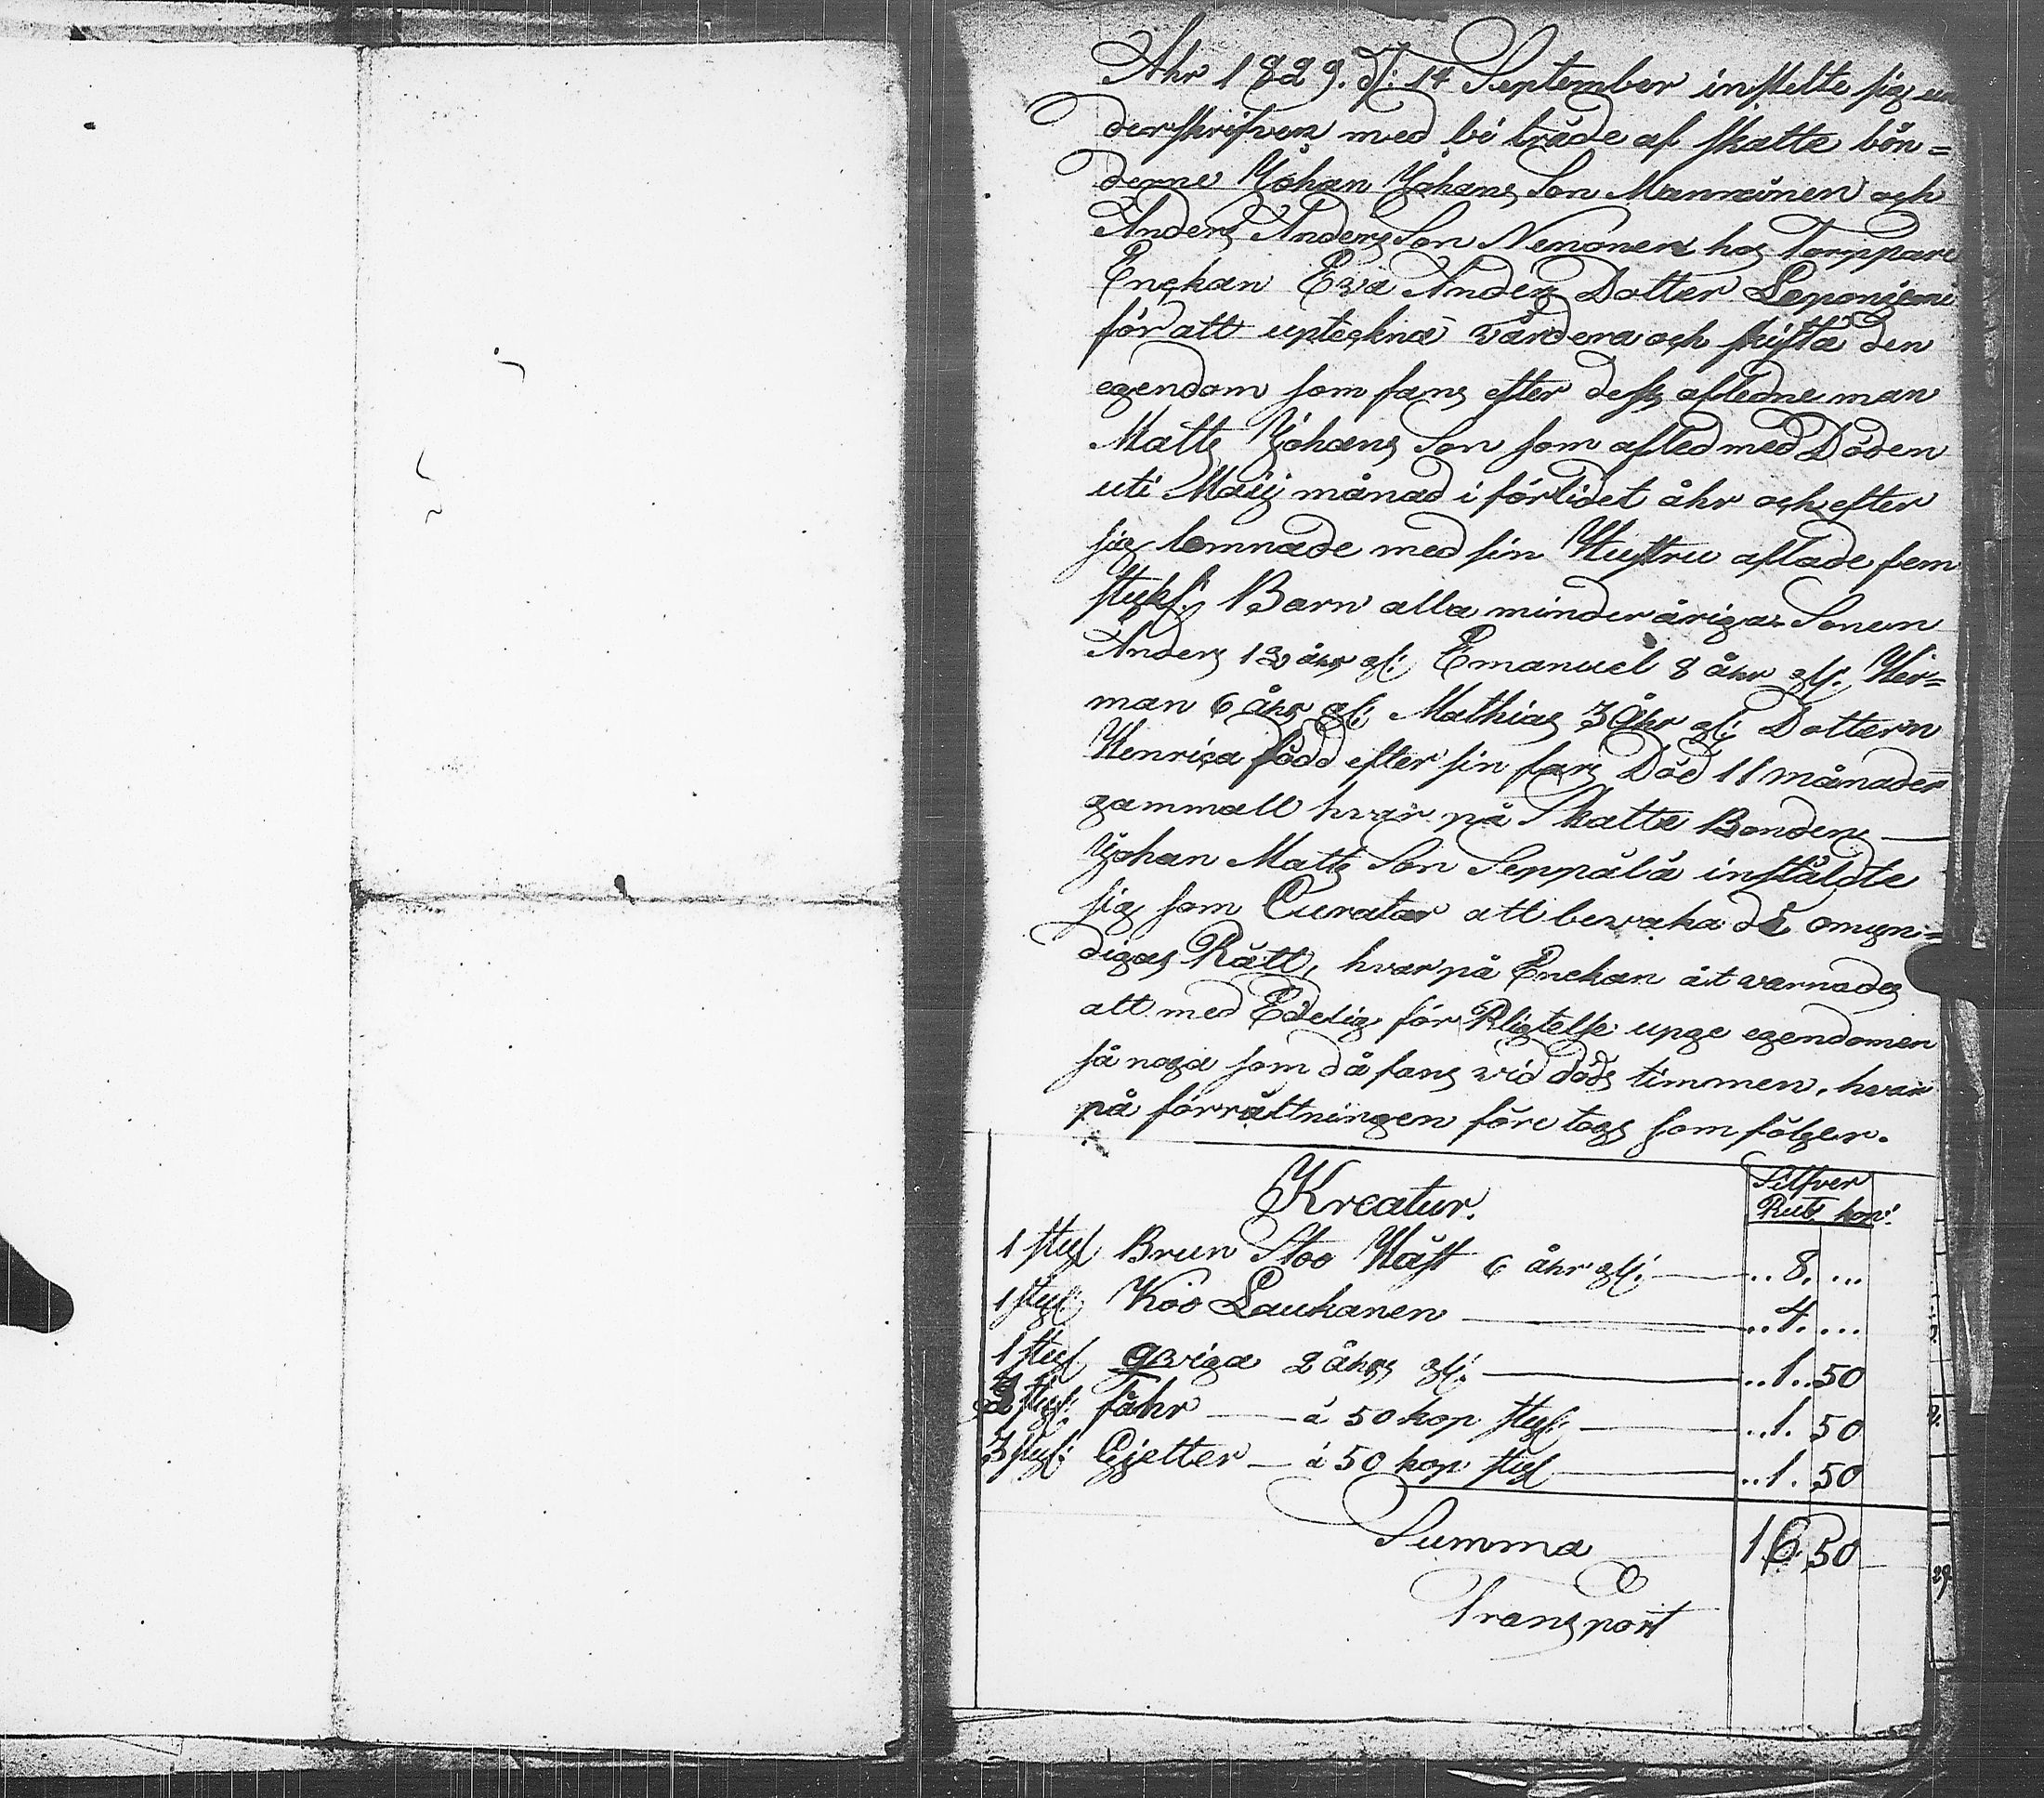 Åhr 1829. d: 14 September instelte sig un
derskrifven med bi träde af skatte bön=
derne Johan Johans Son Manninen och
Anders Anders Son Nenonen hos Torppare
Enckan Eva Anders Dotter Leponiemi
för att upteckna värdera och skifta den
egendom som fans efter dess afledne man
Matts Johans Son som afled med Döden
uti Maij månad i förlidet åhr och efter
sig lemnade med sin Hustru aflade fem
styks: Barn alla minder åriga Sonen
Anders 13 åhr gl: Emanuel 8 åhr gl: Her=
man 6 åhr gl: Mathias 3 åhr gl: Dottern
Henrica född efter sin fars Död 11 månader
gammall hvar på Skatte Bonden
Johan Matts Son Seppälä instäldte
sig som Curator att bevaka de omyn=
digas Rätt, hvar på Enckan åt varnades
att med Edelig för Pligtelse upge egendomen
så noga som då fans vid döds timmen, hvar
på förrättningen före togs som fölger.
Silfver
Kreatur. Rub. kop:
1 styk Brun Stoo Häst 6 åhr gl: .. 8. ...
1 styk: Koo Laukanen .. 4. ...
1 styk qviga 2 åhrs gl: .. 1 .. 50
3 styk: fåhr á 50 kop styk: .. 1. 50
3 styk: Gjetter á 50 kop styk .. 1. 50
Summa 16 50
Transport